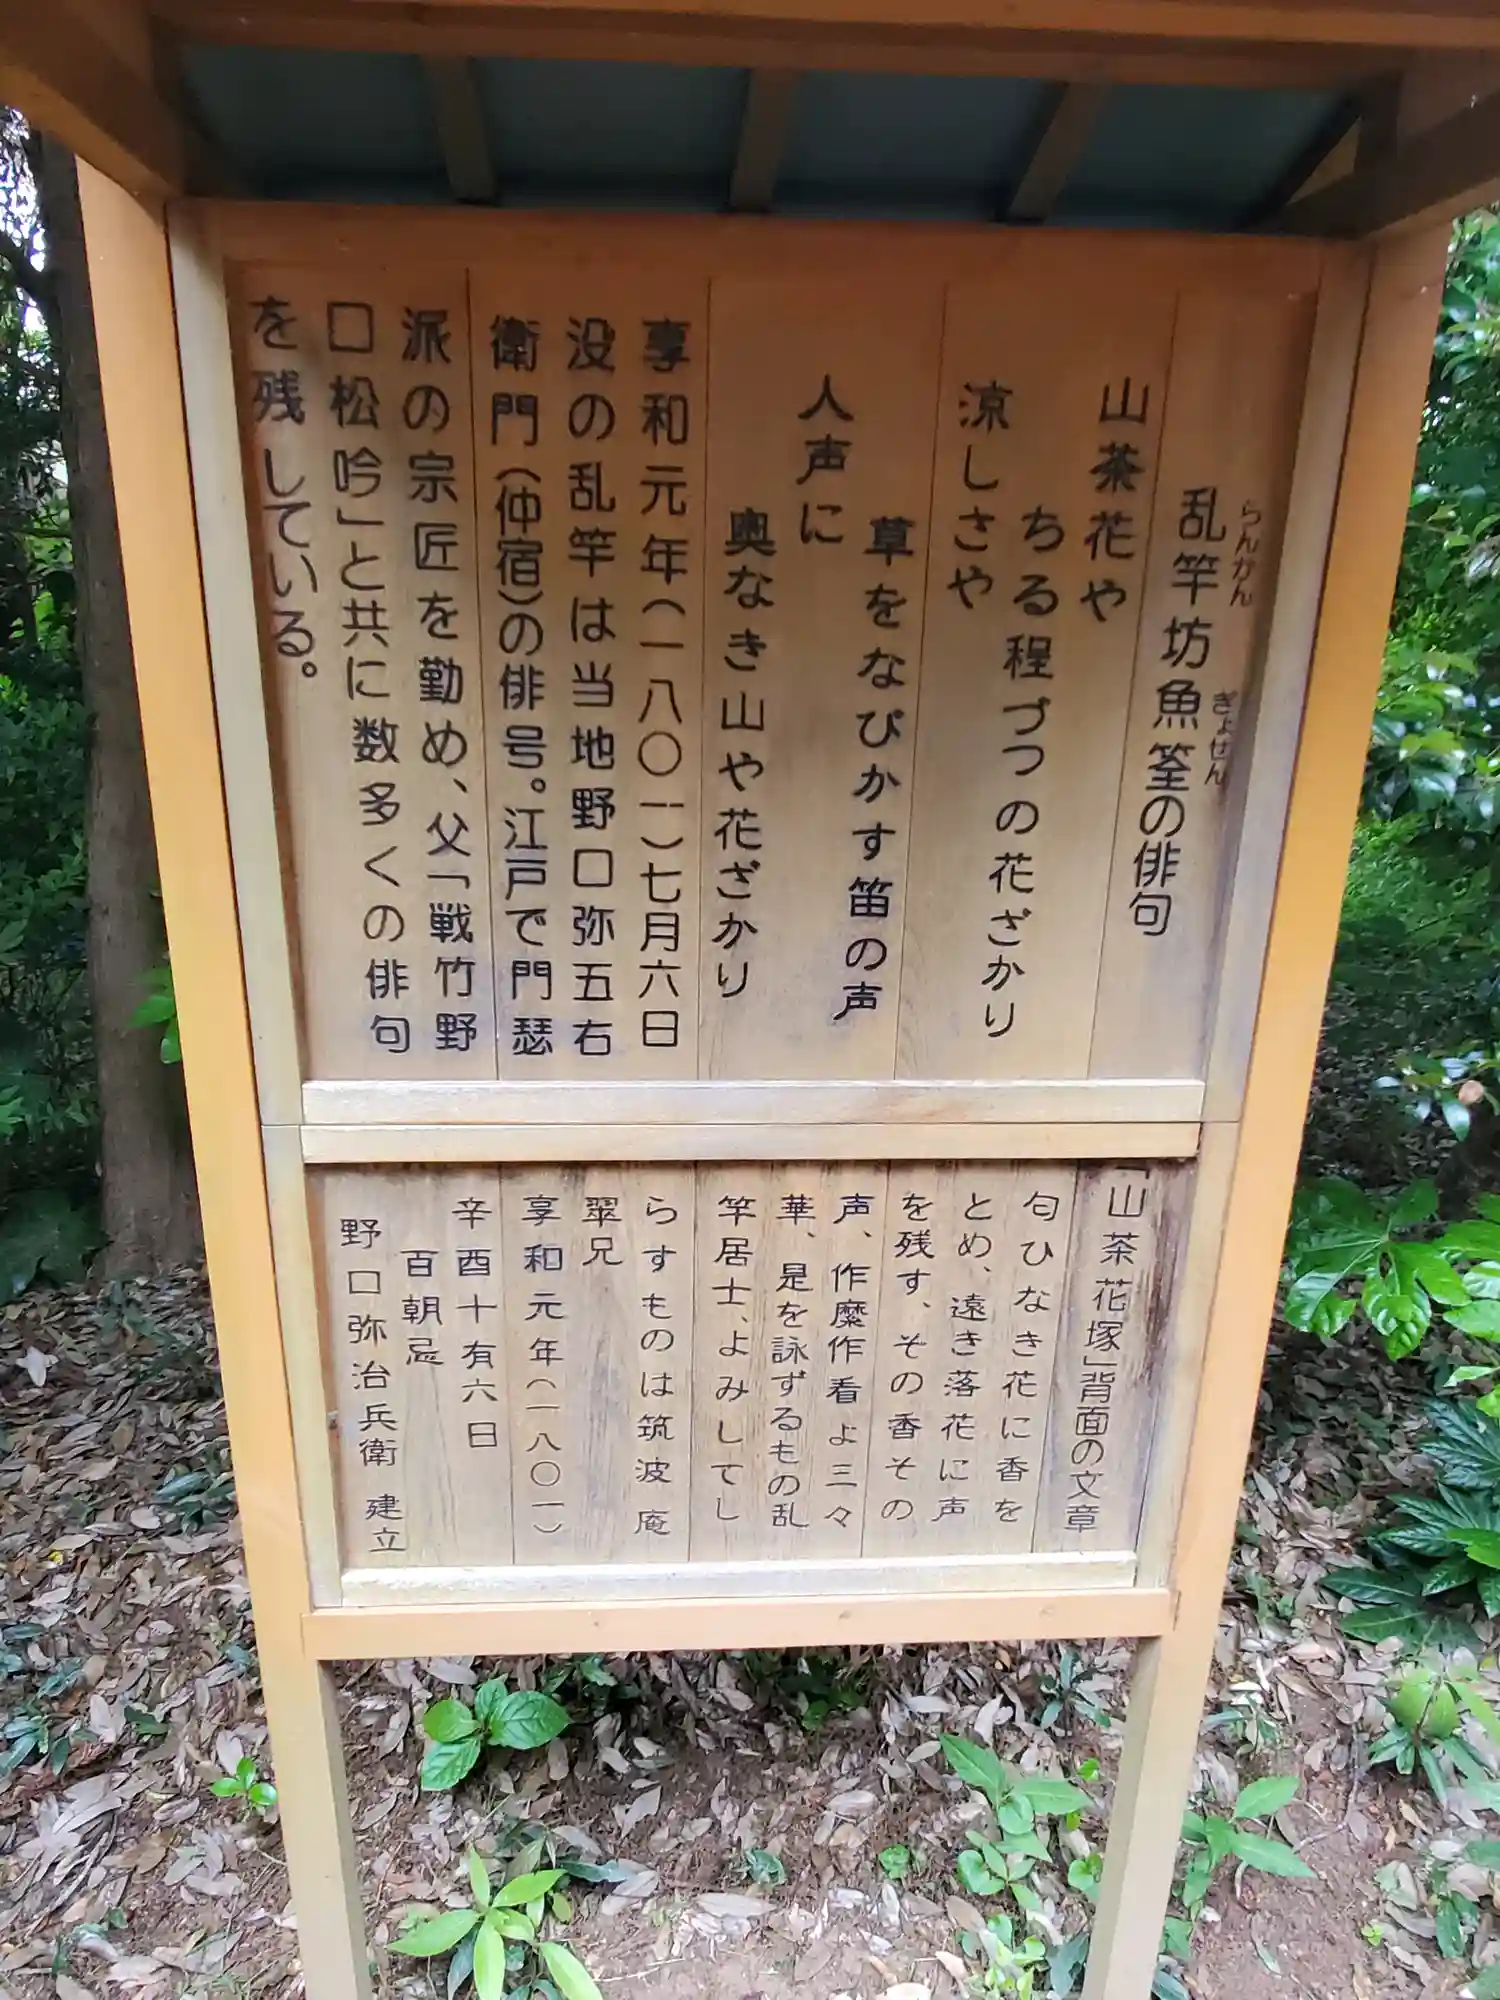 乱竿坊魚筌の俳句
らんかん
ぎょせん
山茶花や
ちる程づつの花ざかり
涼しさや
草をなびかす笛の声
人声に
奥なき山や花ざかり
享和元年(一八〇一)七月六日
没の乱竿は当地野口弥五右
衛門(仲宿)の俳号。江戸で門瑟
派の宗匠を勤め、父「戦竹野
口松吟」と共に数多くの俳句
を残している。
「山茶花塚」背面の文章
匂ひなき花に香を
とめ、遠き落花に声
を残す、その香その
声、作麼作看よ三々
華、是を詠ずるもの乱
竿居士、よみしてし
らすものは筑波庵
翠兄
享和元年(一八〇一)
辛酉十有六日
百朝忌
野口弥治兵衛 建立